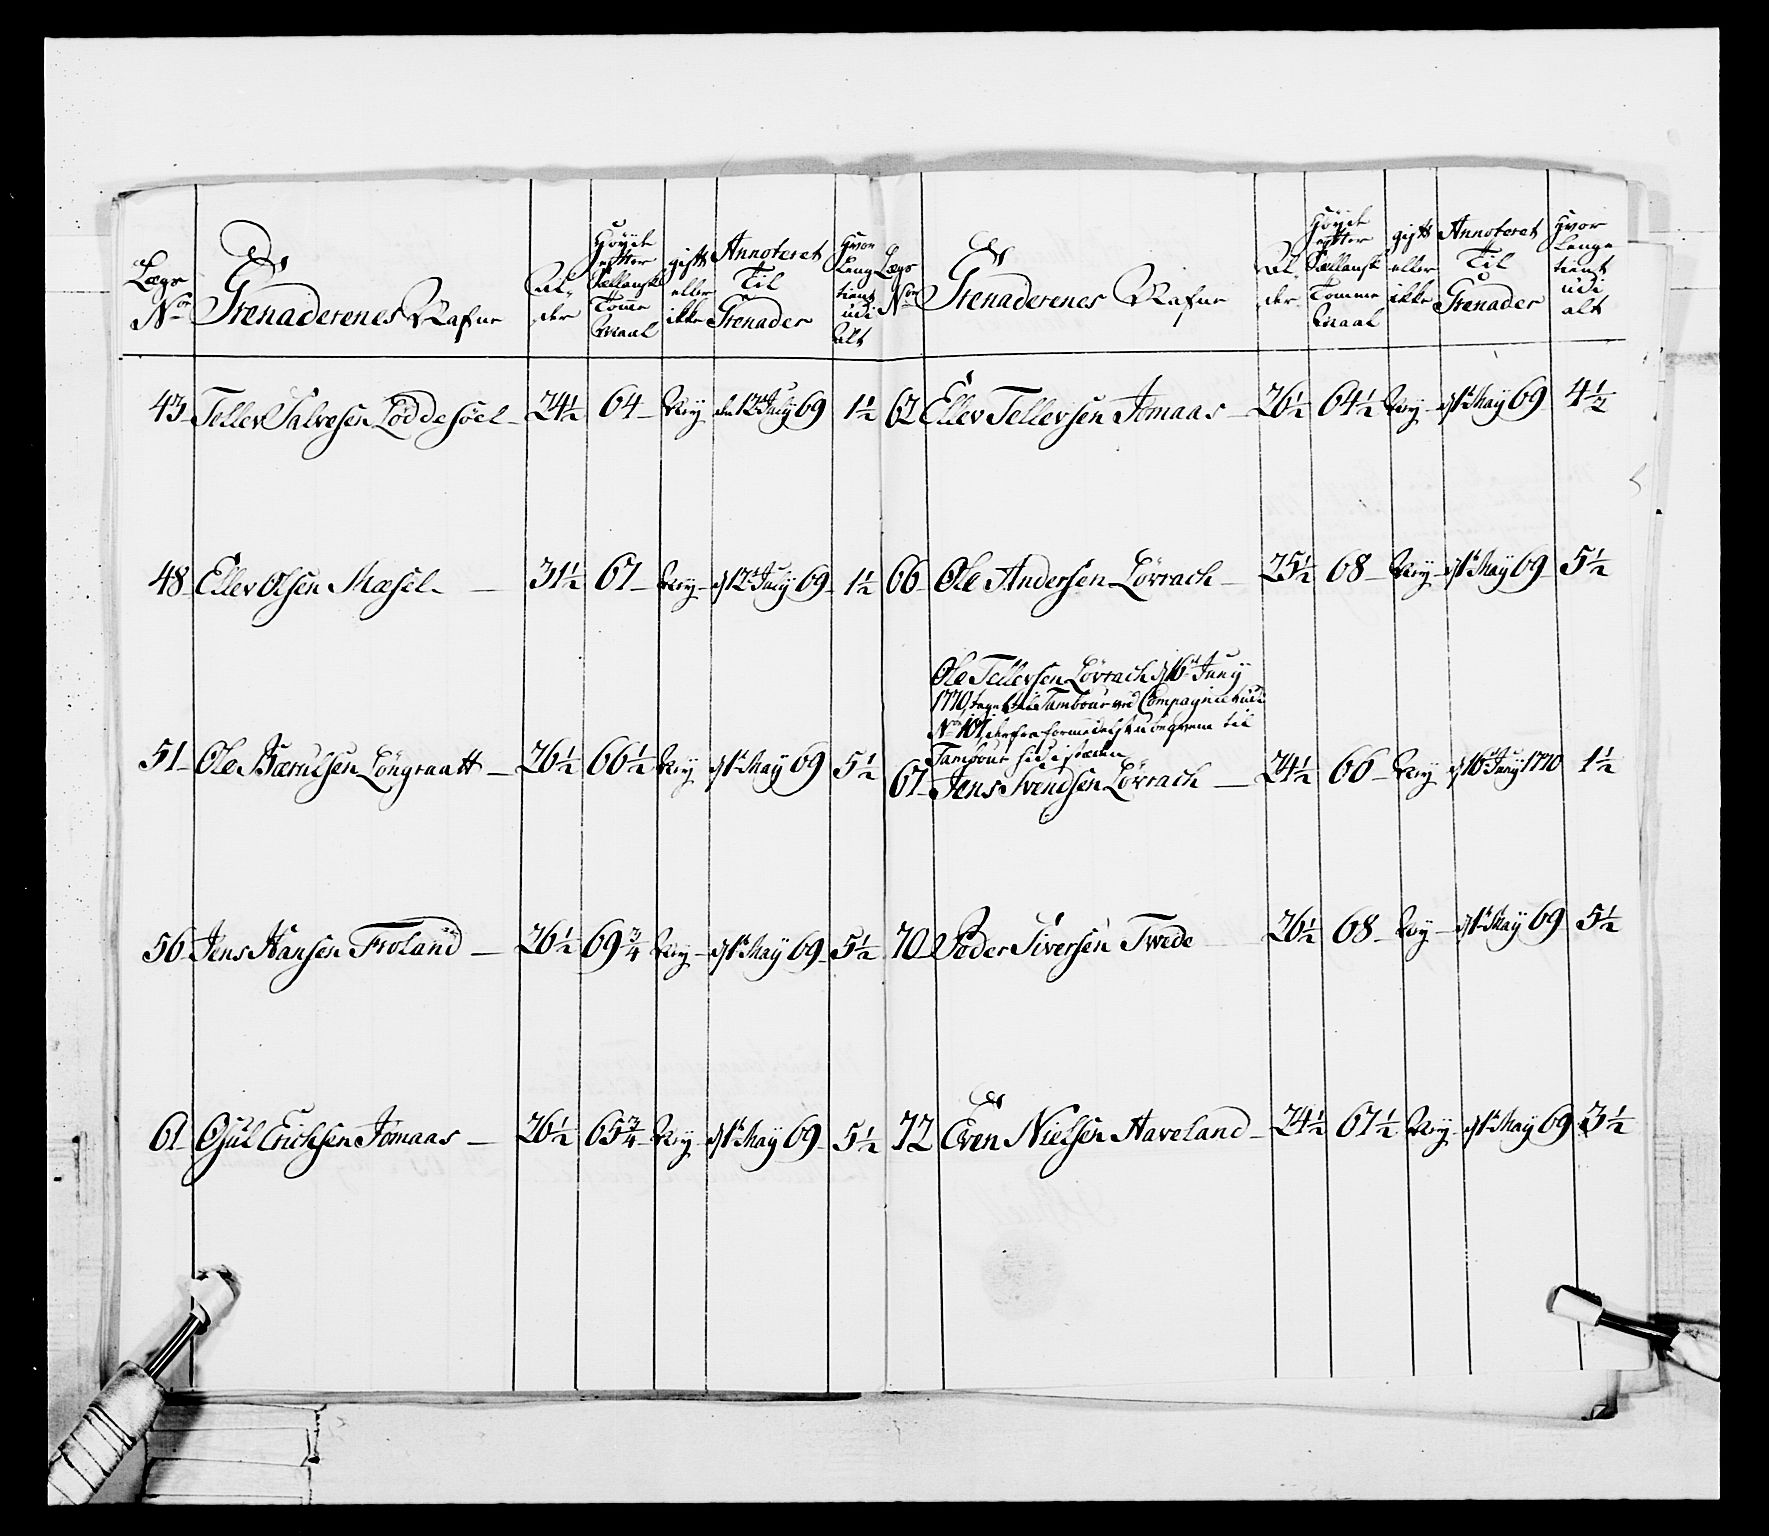 Lægs
No
Grenaderenes Nafne
Al-
der
Høyde
efter
Sællansk
Tomme
Maal
gift
eller
ikke
Annoteret
Til
Grenader
Hvor
Leng
tient
udi
alt
43 Tellev Salvesen Loddesöel 24½ 64 Ney den 12t July 69 1½
48 Ellev Olsen Mæsel 31½ 67 Ney d 12t July 69 1½
51 Ole Bærulsen Löngraatt 26½ 66½ Ney d 1t May 69 5½
56 Jens Hansen Froland 26½ 69¾ Ney d 1t May 69 5½
61 Gül Erichsen Jomaas 26½ 65¾ Ney d 1t May 69 5½
Lægs
No
Grenaderenes Nafne
Al-
der
Høyde
efter
Sællansk
Tomme
Maal
gift
eller
ikke
Annoteret
Til
Grenader
Hvor
Lenge
tient
udi
alt
62 Ellev Tellevsen Jomaas 26½ 64½ Ney d 1t May 69 4½
66 Ole Andersen Lövrach 25½ 68 Ney d 1t May 69 5½
Ole Tellevsen Lövrach d 16t Juny
1770 Tambour ved Compagniet udi
No 107, derfra formedelst ubeqvem til
Tambour
67 Jens Svendsen Lövrach 24½ 66 Ney d 16t Juny 1770 1½
70 Peder Siversen Twede 26½ 68 Ney d 1t May 69 5½
72 Even Nielsen Haveland 24½ 67½ Ney d 1t May 69 3½